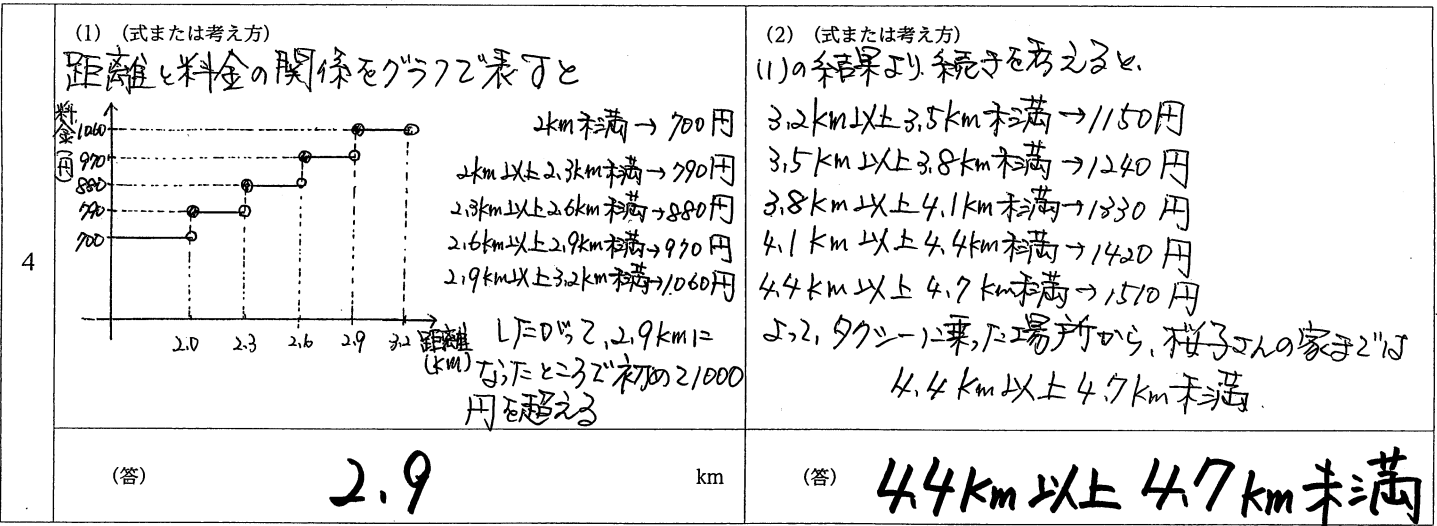 4
(1) (式または考え方)
距離と料金の関係をグラフで表すと
料金(円)
1060
970
880
790
700
2.0 2.3 2.6 2.9 3.2 距離(km)
2km未満→700円
2km以上2.3km未満→790円
2.3km以上2.6km未満→880円
2.6km以上2.9km未満→970円
2.9km以上3.2km未満→1060円
したがって、2.9kmに
なったところで初めて1000
円を超える
(答) 2.9 km
(2) (式または考え方)
(1)の結果より続きを考えると、
3.2km以上3.5km未満→1150円
3.5km以上3.8km未満→1240円
3.8km以上4.1km未満→1330円
4.1km以上4.4km未満→1420円
4.4km以上4.7km未満→1510円
よって、タクシーに乗った場所から、桜子さんの家までは
4.4km以上4.7km未満.
(答) 4.4km以上4.7km未満